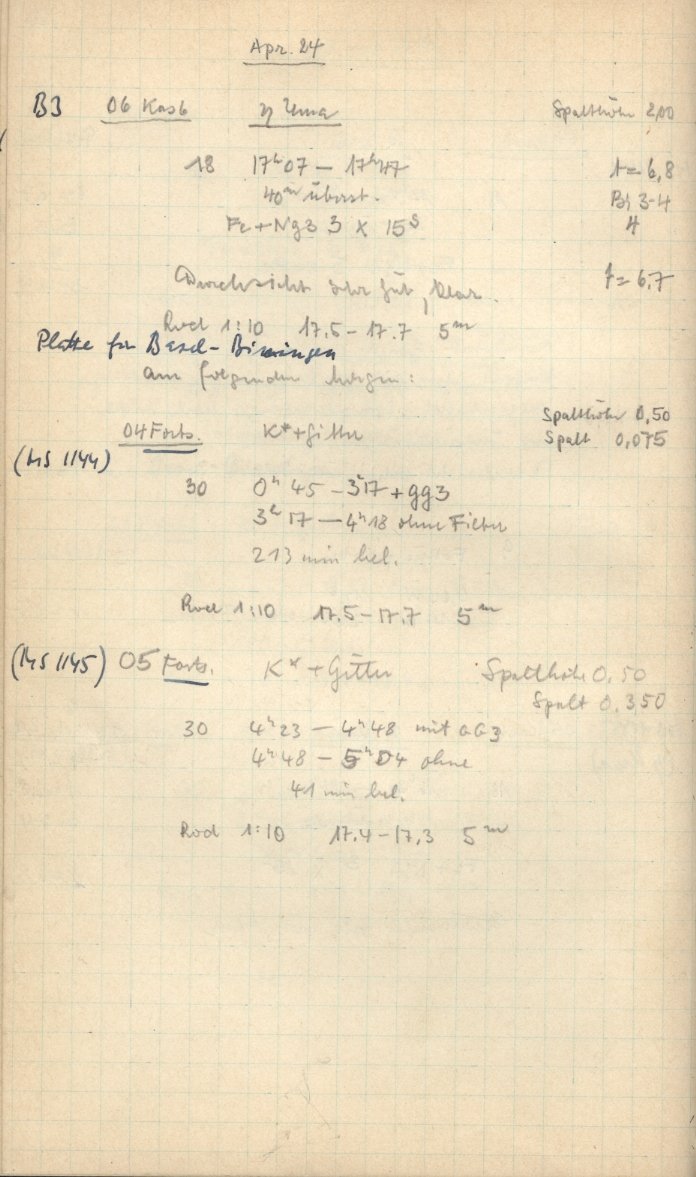 Apr. 24
B3 06 Kas6 η Uma Spalthöhe 2,00
18 17ʰ07 – 17ʰ47 t = 6,8
40ᵐ überst. Br 3-4
Fe + Ng3 3 x 15ˢ 4
Durchsicht sehr gut, klar. t = 6,7
Rod 1:10 17.5 – 17.7 5ᵐ
Platte für Basel-Binningen
am folgenden Morgen:
04 Forts. K* + Gitter Spalthöhe 0,50
Spalt 0,075
(MS 1144)
30 0ʰ 45 – 3ʰ17 + gg3
3ʰ 17 – 4ʰ 18 ohne Filter
213 min bel.
Rod 1:10 17.5 – 17.7 5ᵐ
(MS 1145) 05 Forts. K* + Gitter Spalthöhe 0,50
Spalt 0,350
30 4ʰ 23 – 4ʰ 48 mit GG3
4ʰ 48 – 5ʰ 04 ohne
41 min bel.
Rod 1:10 17.4 – 17,3 5ᵐ